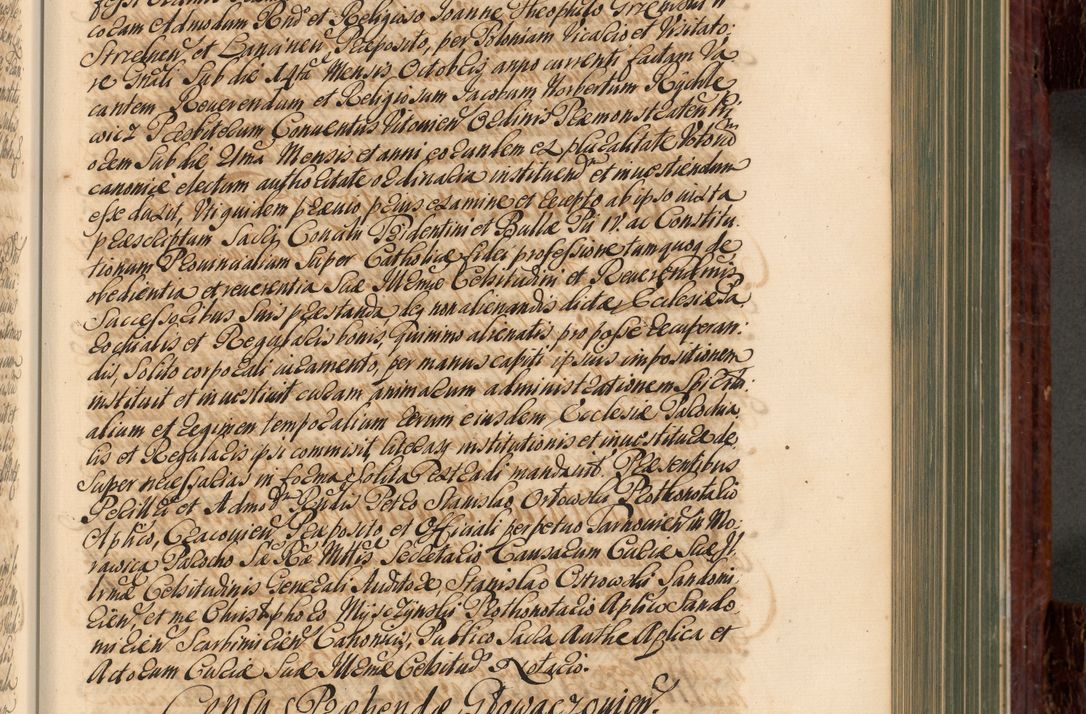 cocam Admodum Rndo et Religioso Joanne Theophilo
Strzelnen et Præposito, per Poloniam Vicario et Visitato
re Gnali Sub die 14ta Mensis Octobris anno currenti factam Va
cantem Reverendum et Religiosum Jacobum Norbertum Rychle
wicz Præsbiterum Conventus Vitovien Ordinis Præmonstraten
odem Sub die 2ma Mensis et anni eorundem ex pluralitate Votorum
canonice electum authoritate ordinaria instituend et investiendum
esse duxit, Uti quidem prævio prius examine et recepto ab ipso iuxta
præscriptum Sacri Concilii Tridentini et Bullæ Pii IV. ac Constitu
tionum Provincialium Super Catholicæ fidei professione tumquoq de
obedientia et reverentia Suæ Illmæ Celsitudini et Reverendmis
Successoribus Suis præstanda deq non alienandis dictæ Ecclesiæ Pa
rochialis et Regularis bonis, quinimo alienatis pro posse recuperan:
dis, Solito corporali iuramento, per manus capiti ipsius impositionem
instituit et investivit curam animarum administrationem Spiritu:
alium et regimen temporalium rerum eiusdem Ecclesiæ Parochia
lis et Regularis ipsi commisit, literasq institutionis et investituræ de
Super necessarias in forma Solita extradi mandavit. Præsentibus
Perillri et Admod Rndis Petro Stanislao Orłowski Prothonotario
Aplico, Cracovien, Præposito et Officiali perpetuo Tarnovien in Mo:
rawica Parocho Sa Ra Mttis Secretario Causarum Curiæ Suæ Il
lrmæ Celsitudinis Generali Auditore, Stanislao Ostrowski Sandomi
rien, et me Christophoro Myszczynski Prothonotario Aplico Sando
mirien Scarbimirien Canonicis, Publico Sacra Authe Aplica et
Actorum Curiæ Suæ Illmæ Celsitud Notario.
Præbendæ Głowaczovien.